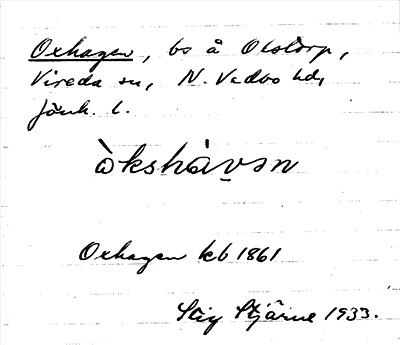 Oxhagen, bs å Olstorp,
Vireda sn, N. Vedbo hd,
Jönk. l.
òkshàvən
Oxhagen kb 1861
Stig Stjärne 1933.